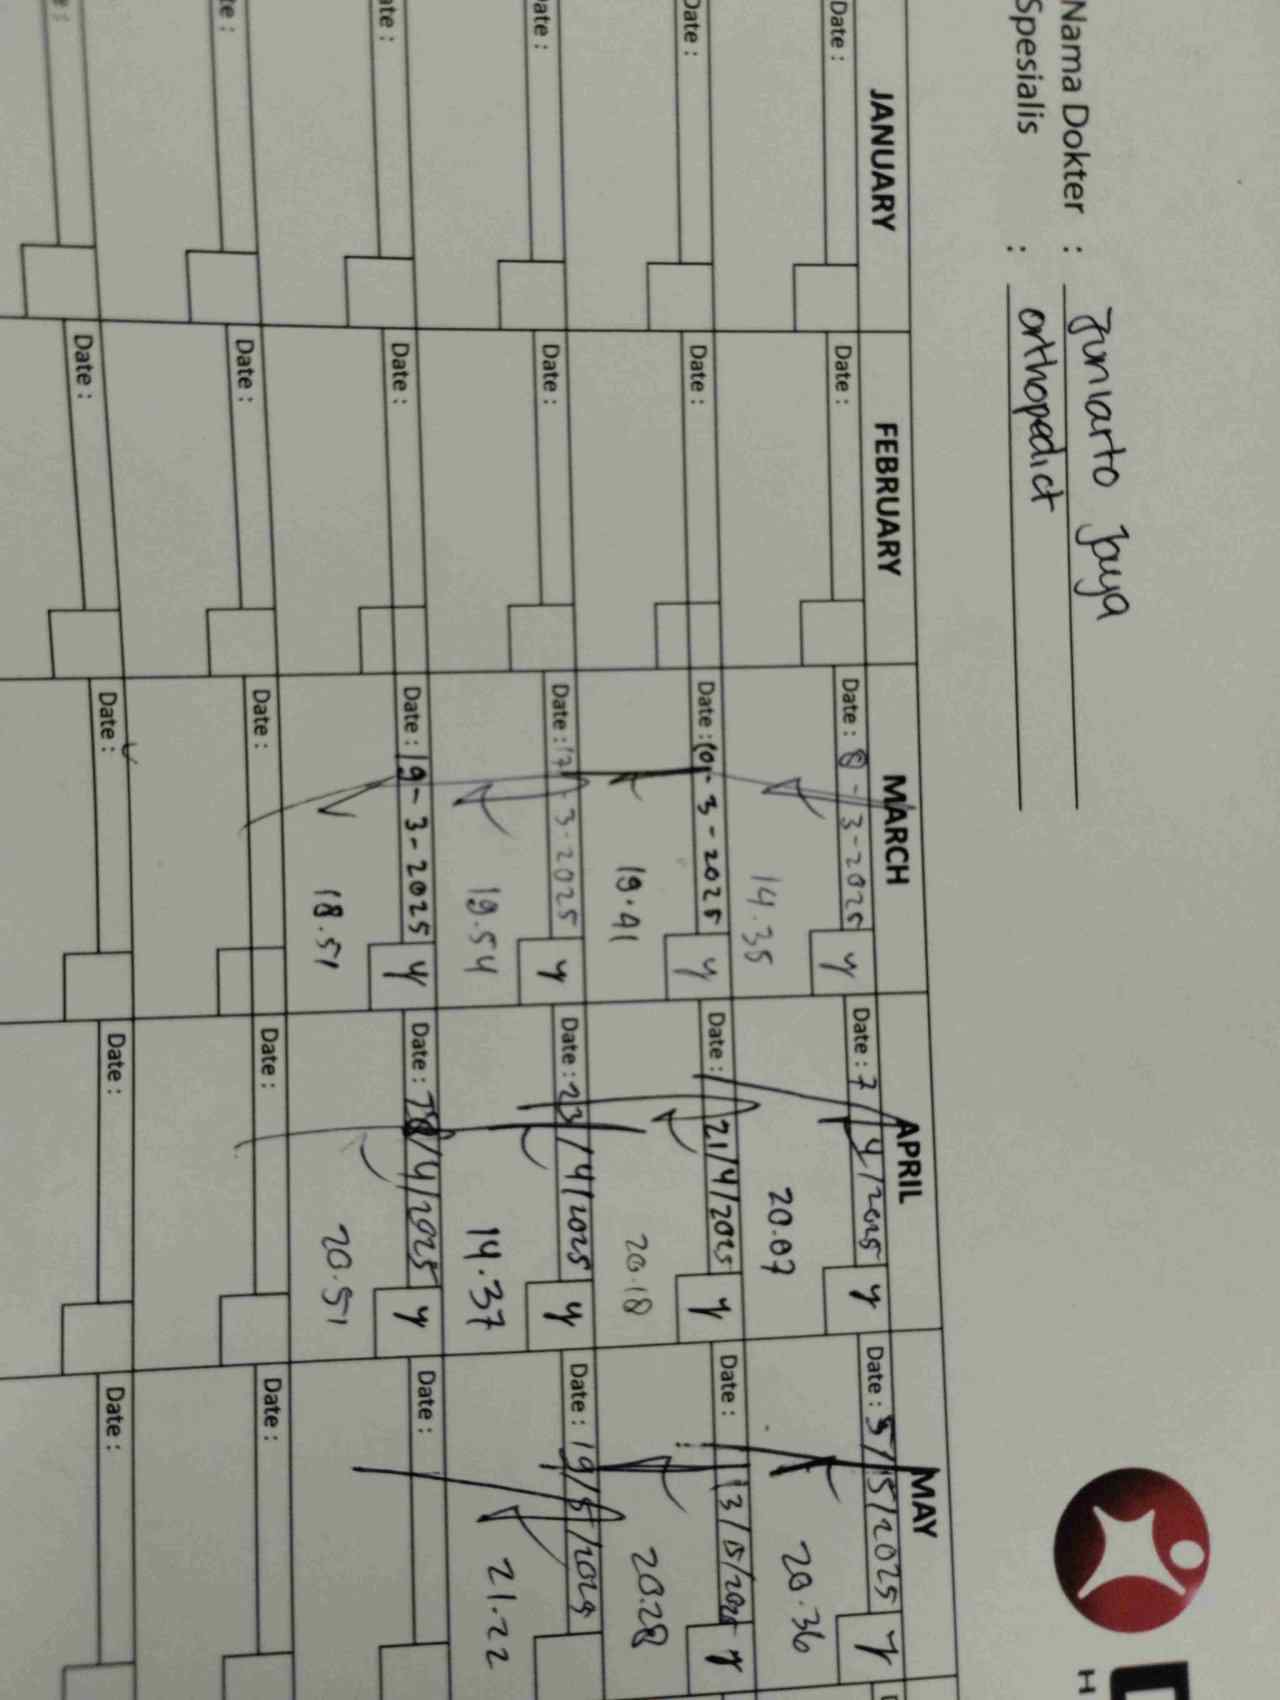 Nama Dokter : Juniarto Jaya
Spesialis : orthopedict
JANUARY FEBRUARY MARCH APRIL MAY
Date : Date : Date : 8 - 3 - 2025 y Date : 7/4/2025 y Date : 5/5/2025 y
14.35 20.07 20.36
Date : Date : Date : 10 - 3 - 2025 y Date : 21/4/2025 y Date : 13/5/2025 y
19.41 20.18 20.28
Date : Date : Date : 17 - 3 - 2025 y Date : 23/4/2025 y Date : 19/5/2025
19.54 14.37 21.22
ate : Date : Date : 19 - 3 - 2025 y Date : 28/4/2025 y Date :
18.51 20.51
te : Date : Date : Date : Date :
e : Date : Date : Date : Date :
H